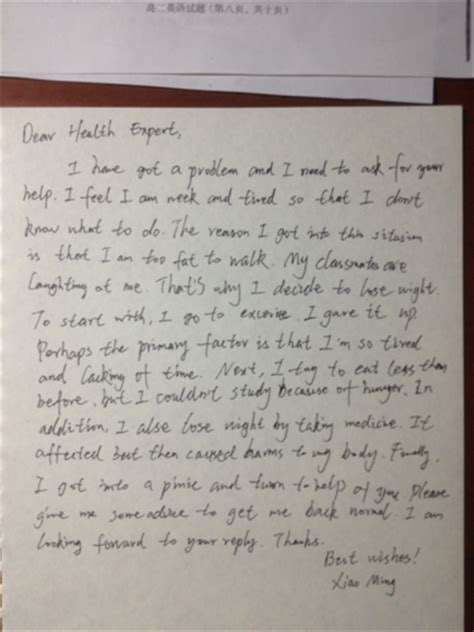 高二英语试题(第八页,共十页)
Dear Health Expert,
I have got a problem and I need to ask for your
help. I feel I am week and tired so that I don't
know what to do. The reason I got into this situsion
is that I am too fat to walk. My classmates are
laughting at me. That's why I decide to lose wight.
To start with, I go to excerise. I gave it up.
Perhaps the primary factor is that I'm so tired
and lacking of time. Next, I try to eat less than
before, but I couldn't study because of hunger. In
addition, I alse lose wight by taking medicine. It
affected but then caused harms to my body. Finally,
I got into a pinic and turn to help of you. Please
give me some advice to get me back normal. I am
looking forward to your reply. Thanks.
Best wishes!
Xiao Ming